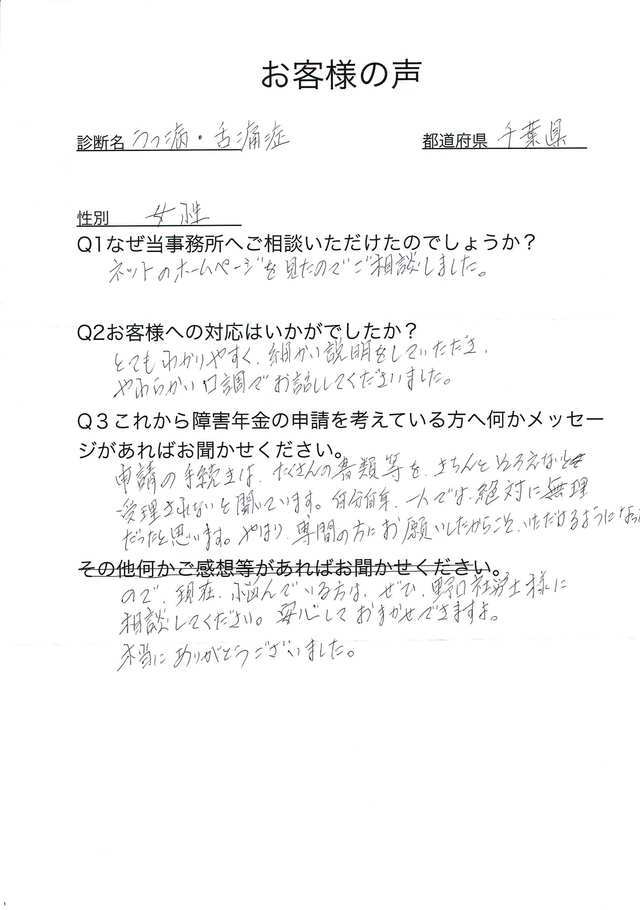 お客様の声
診断名 うつ病・舌痛症 都道府県 千葉県
性別 女性
Q1なぜ当事務所へご相談いただけたのでしょうか？
ネットのホームページを見たのでご相談しました。
Q2お客様への対応はいかがでしたか？
とてもわかりやすく、細かい説明をしていただき、
やわらかい口調でお話ししてくださいました。
Q３これから障害年金の申請を考えている方へ何かメッセー
ジがあればお聞かせください。
申請の手続きは、たくさんの書類等を、きちんとそろえないと
受理されないと聞いています。自分自身、一人では絶対に無理
だったと思います。やはり、専門の方にお願いしたからこそ、いただけるようになった
その他何かご感想等があればお聞かせください。
ので、現在、悩んでいる方は、ぜひ、野口社労士様に
相談してください。安心しておまかせできますよ。
本当にありがとうございました。